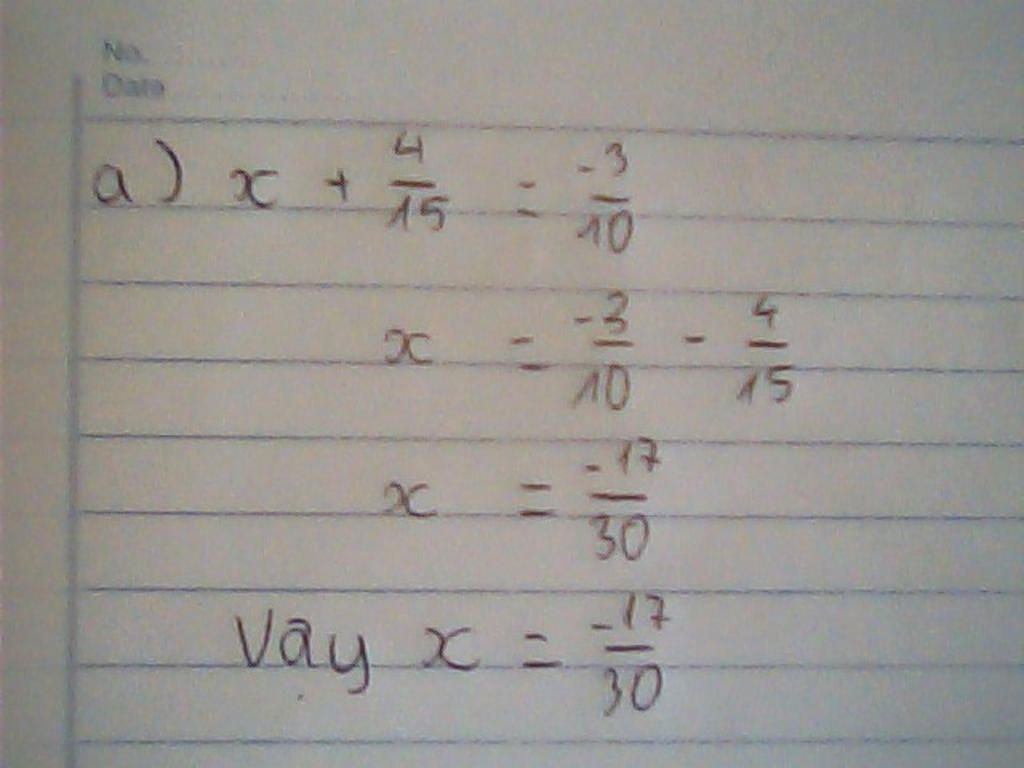 No.
Date
a) x + 4/15 = -3/10
x = -3/10 - 4/15
x = -17/30
Vậy x = -17/30